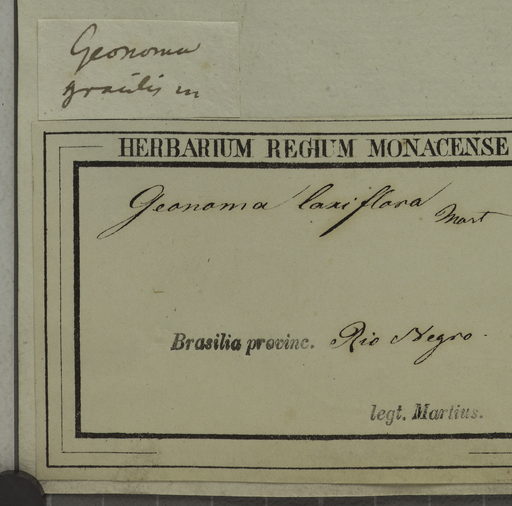 Geonoma
gracilis m
HERBARIUM REGIUM MONACENSE
Geonoma laxiflora Mart
Brasilia provinc. Rio Negro.
legt. Martius.